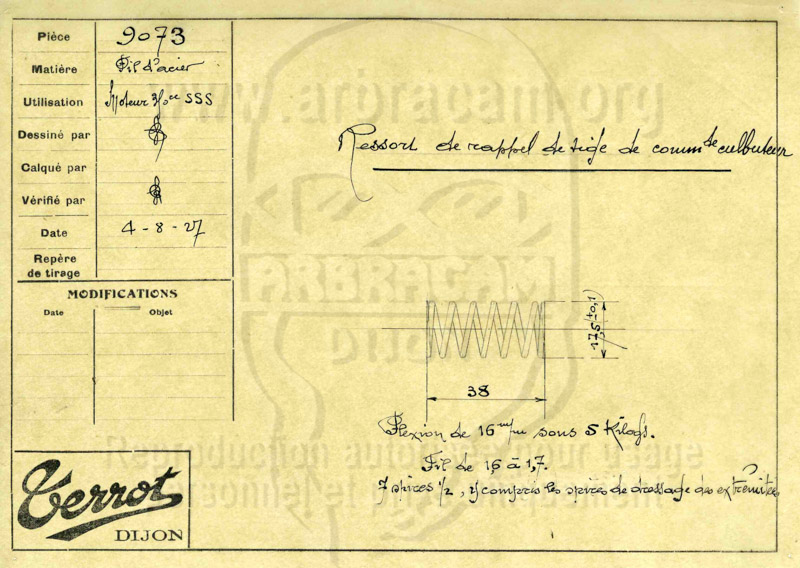 Pièce 9073
Matière Fil d'acier
Utilisation Moteur 350cc SSS
Dessiné par
Calqué par
Vérifié par
Date 4-8-27
Repère
de tirage
MODIFICATIONS
Date Objet
Terrot
DIJON
Ressort de rappel de tige de commde culbuteur
17,5 (±0,1)
38
Flexion de 16 m/m sous 5 Kilogs.
Fil de 1,6 à 1,7.
7 spires 1/2, y compris les spires de dressage des extrémités
www.arbracam.org
ARBRACAM
DIJON
Reproduction autorisée pour usage
personnel et privé uniquement